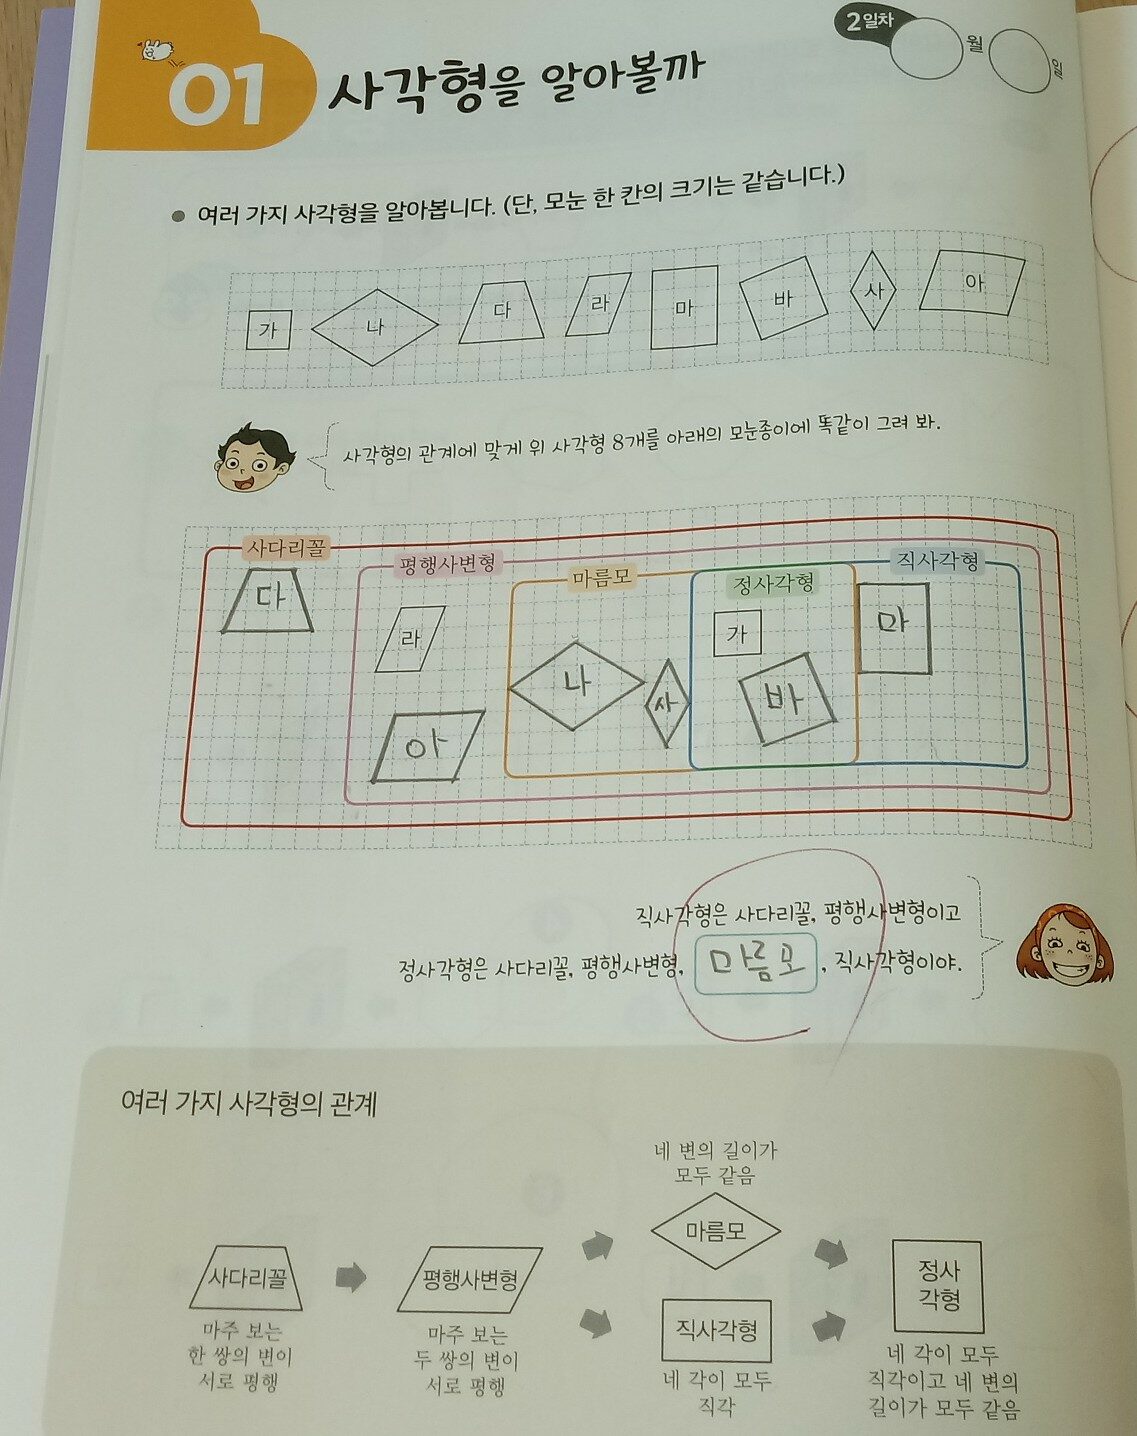 2일차
월
일
01 사각형을 알아볼까
● 여러 가지 사각형을 알아봅니다. (단, 모눈 한 칸의 크기는 같습니다.)
가 나 다 라 마 바 사 아
사각형의 관계에 맞게 위 사각형 8개를 아래의 모눈종이에 똑같이 그려 봐.
사다리꼴 평행사변형 마름모 정사각형 직사각형
다 라 나 사 가 마
아 바
직사각형은 사다리꼴, 평행사변형이고
정사각형은 사다리꼴, 평행사변형, 마름모, 직사각형이야.
여러 가지 사각형의 관계
사다리꼴
마주 보는
한 쌍의 변이
서로 평행
평행사변형
마주 보는
두 쌍의 변이
서로 평행
네 변의 길이가
모두 같음
마름모
직사각형
네 각이 모두
직각
정사
각형
네 각이 모두
직각이고 네 변의
길이가 모두 같음